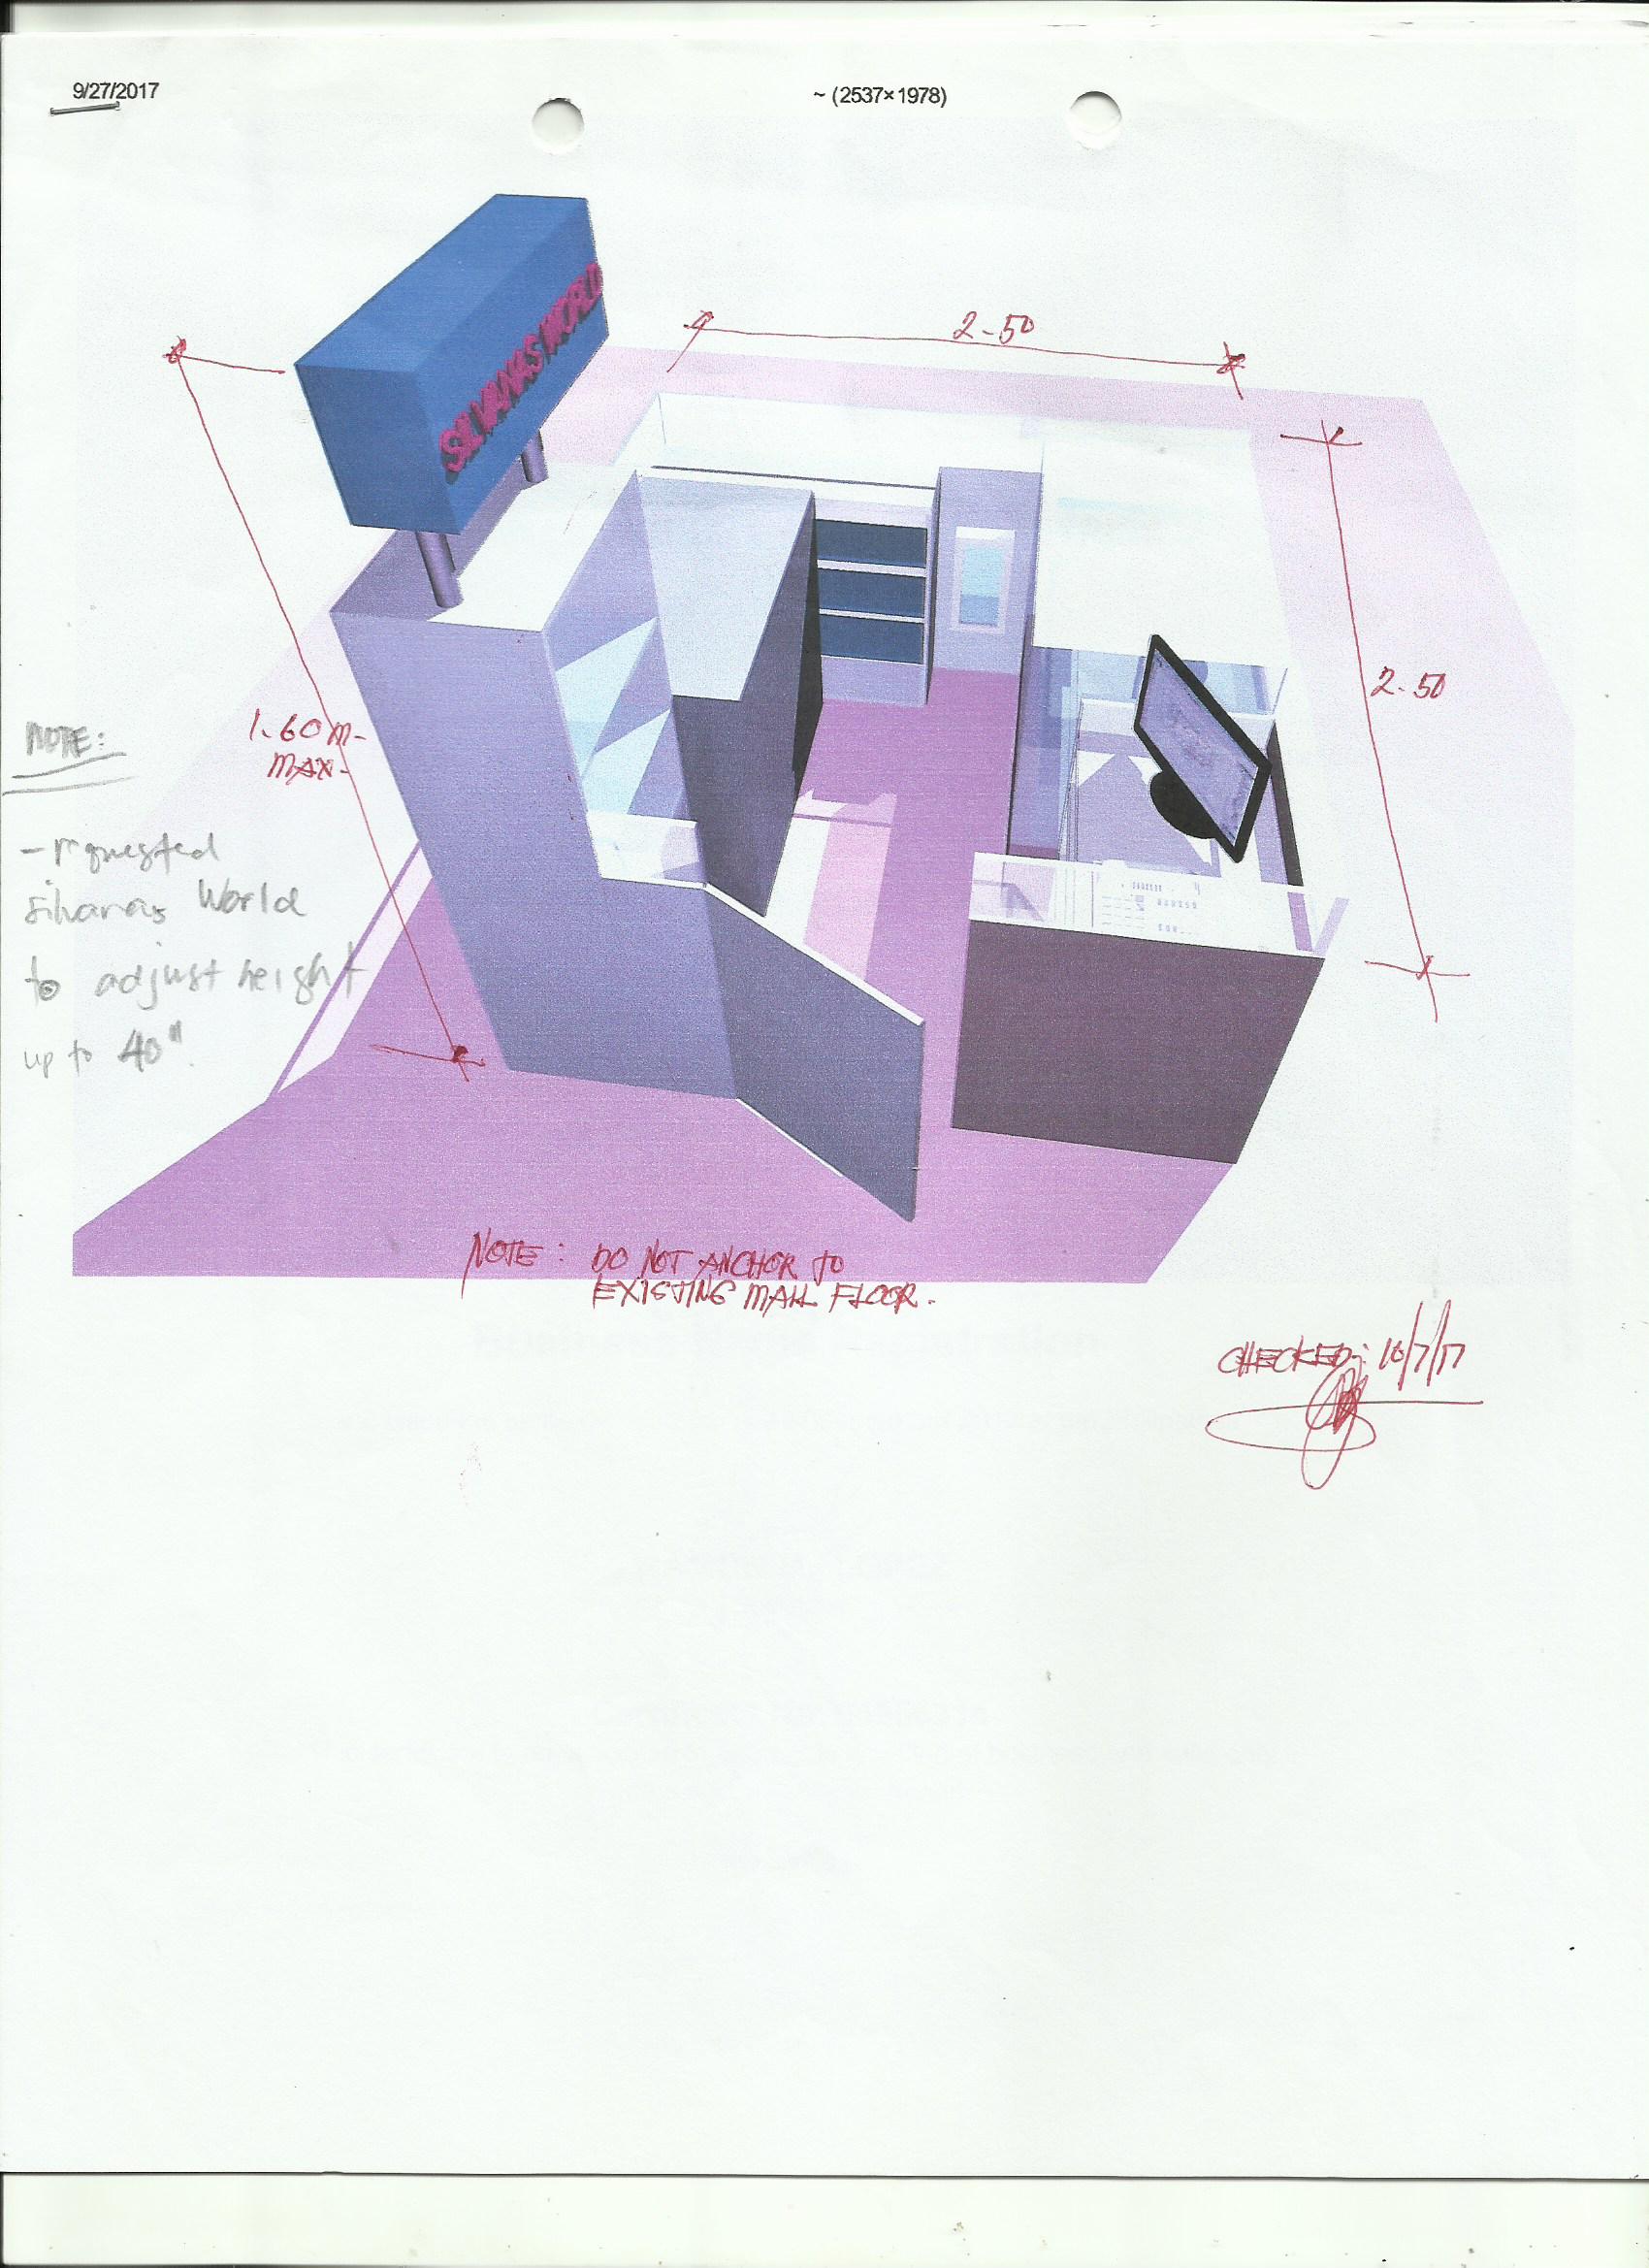 9/27/2017
~ (2537×1978)
SILVANAS WORLD
2-50
2-50
1-60 M-
MAX-
NOTE:
- requested
silvanas World
to adjust height
up to 40"
NOTE : DO NOT ANCHOR TO
EXISTING MALL FLOOR.
CHECKED: 10/7/17